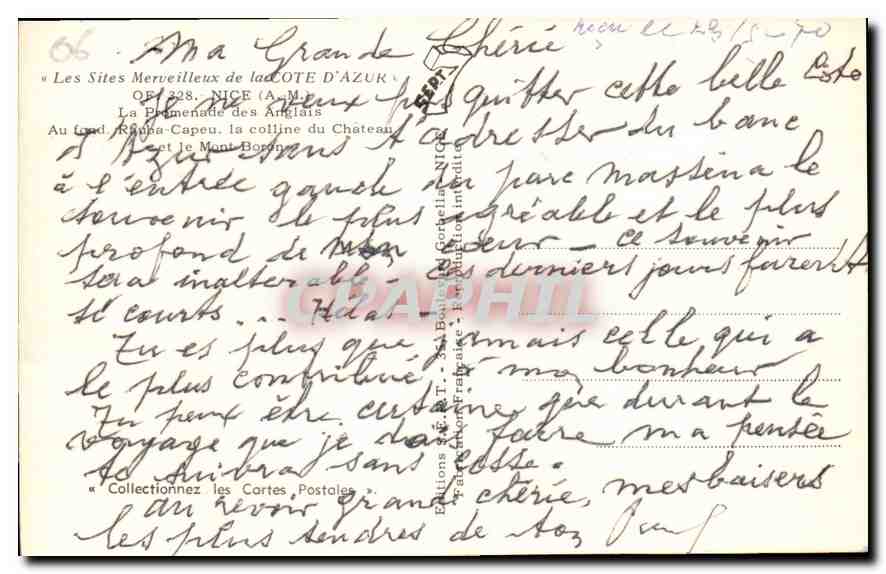 06
Ma Grande Chérie
reçu le 29/5-70
« Les Sites Merveilleux de la COTE D'AZUR »
OF. 328. - NICE (A.-M.)
La Promenade des Anglais
Au fond, Rauba-Capeu, la colline du Château
et le Mont-Boron
SEPT.
Je ne veux pas quitter cette belle Cote
d'Azur sans t'adresser du banc
à l'entrée gauche du parc Masséna le
souvenir le plus agréable et le plus
profond de mon coeur - ce souvenir
sera inalterable - ces derniers jours furent
si courts ... Hélas -
Tu es plus que jamais celle qui a
le plus contribué à mon bonheur
Tu peux être certaine que durant le
voyage que je dois faire ma pensée
te suivra sans cesse.
« Collectionnez les Cartes Postales ».
Au revoir grande chérie, mes baisers
les plus tendres de ton
Editions S.E.P.T. - 35, Boulevard Gorbella, NICE
Fabrication Française - Reproduction interdite
CPAPHIL